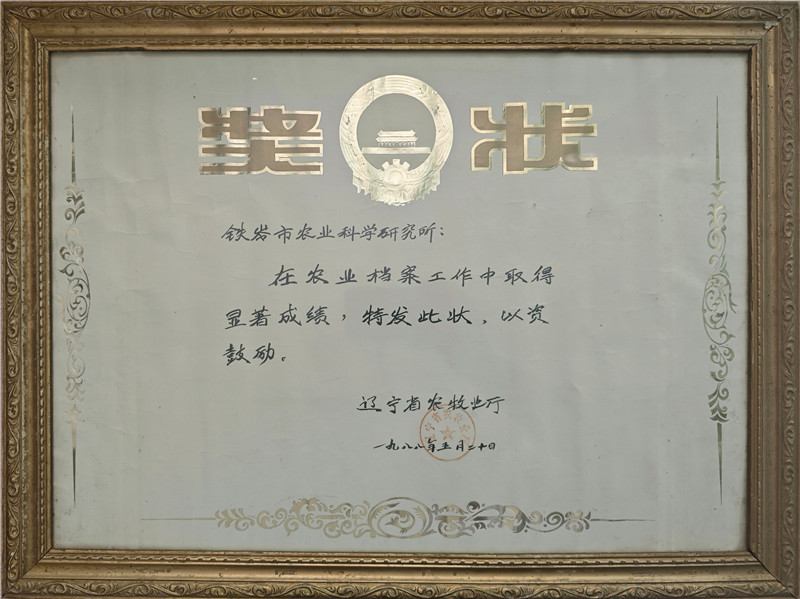 奖 状
铁岭市农业科学研究所：
在农业档案工作中取得
显著成绩，特发此状，以资
鼓励。
辽宁省农牧业厅
一九八八年五月二十日